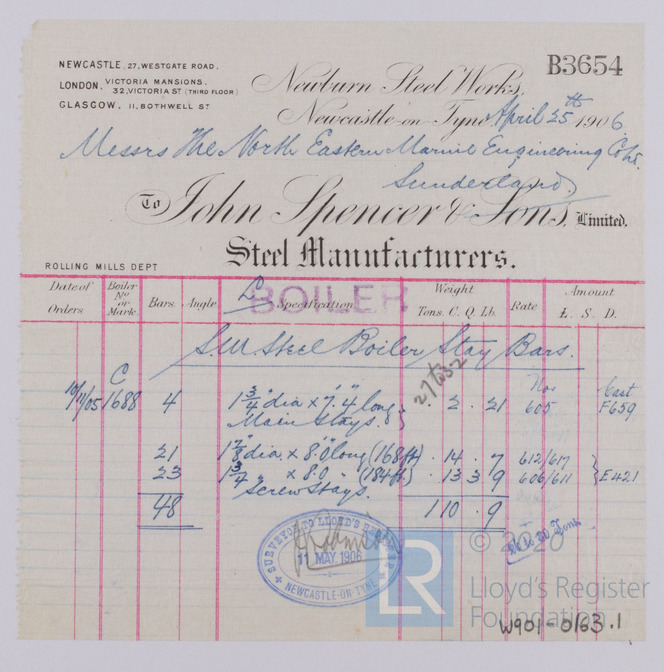 NEWCASTLE. 27, WESTGATE ROAD.
LONDON. VICTORIA MANSIONS.
32, VICTORIA ST (THIRD FLOOR)
GLASGOW. 11, BOTHWELL ST
B3654
Newburn Steel Works,
Newcastle-on-Tyne April 25th 1906
Messrs The North Eastern Marine Engineering Co Ld.
Sunderland
To John Spencer & Sons, Limited.
Steel Manufacturers.
ROLLING MILLS DEPT
Date of Orders Boiler No or Mark. Bars. Angle Specification Weight Tons. C. Q. Lb. Rate Amount £. S. D.
BOILER
S.M Steel Boiler Stay Bars.
C Nos Cast
10/11/05 1688 4 1 3/4" dia x 7'.4" long 2 . 21 605 F659
Main Stays.
21 1 7/8" dia. x 8'.0" long (168ft) . 14 . 7 612/617
23 1 3/4" " x 8.0 " (184ft.) . 13 3 9 606/611 E421
Screw Stays.
48 1 10 . 9
SURVEYOR TO LLOYD'S REGISTER
11 MAY. 1906
NEWCASTLE-ON-TYNE
LR
© 2020
Lloyd's Register
Foundation
W901-0163.1